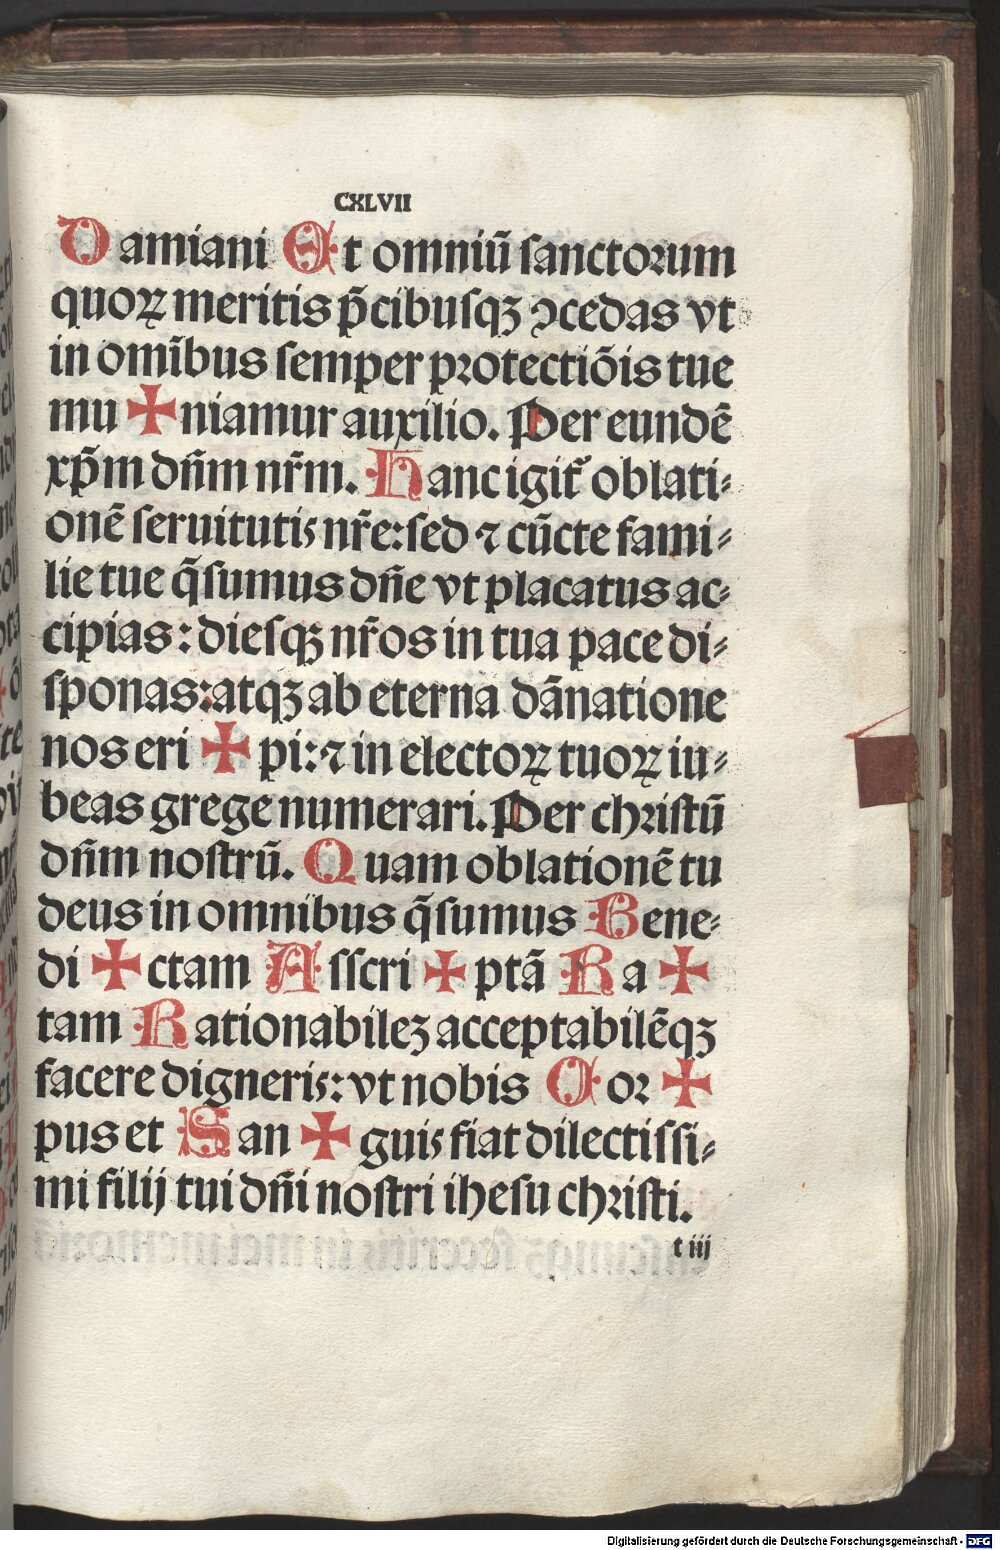 CXLVII
Damiani Et omniū sanctorum
quoꝝ meritis p̄cibusqꝫ ꝯcedas vt
in omībus semper protectiōis tue
mu ✠ niamur auxilio. Per eundē
xp̄m dn̄m nr̄m. Hanc igit᷑ oblati⸗
onē seruitutis nr̄e: sed ⁊ cūcte fami⸗
lie tue q̄sumus dn̄e vt placatus ac⸗
cipias: diesqꝫ nr̄os in tua pace di⸗
sponas: atqꝫ ab eterna dānatione
nos eri ✠ pi: ⁊ in electoꝝ tuoꝝ iu⸗
beas grege numerari. Per christū
dn̄m nostrū. Quam oblationē tu
deus in omnibus q̄sumus Bene⸗
di ✠ ctam Asscri ✠ ptā Ra ✠
tam Rationabileꝫ acceptabilēqꝫ
facere digneris: vt nobis Cor ✠
pus et San ✠ guis fiat dilectissi⸗
mi filij tui dn̄i nostri ihesu christi.
t iij
Digitalisierung gefördert durch die Deutsche Forschungsgemeinschaft - DFG